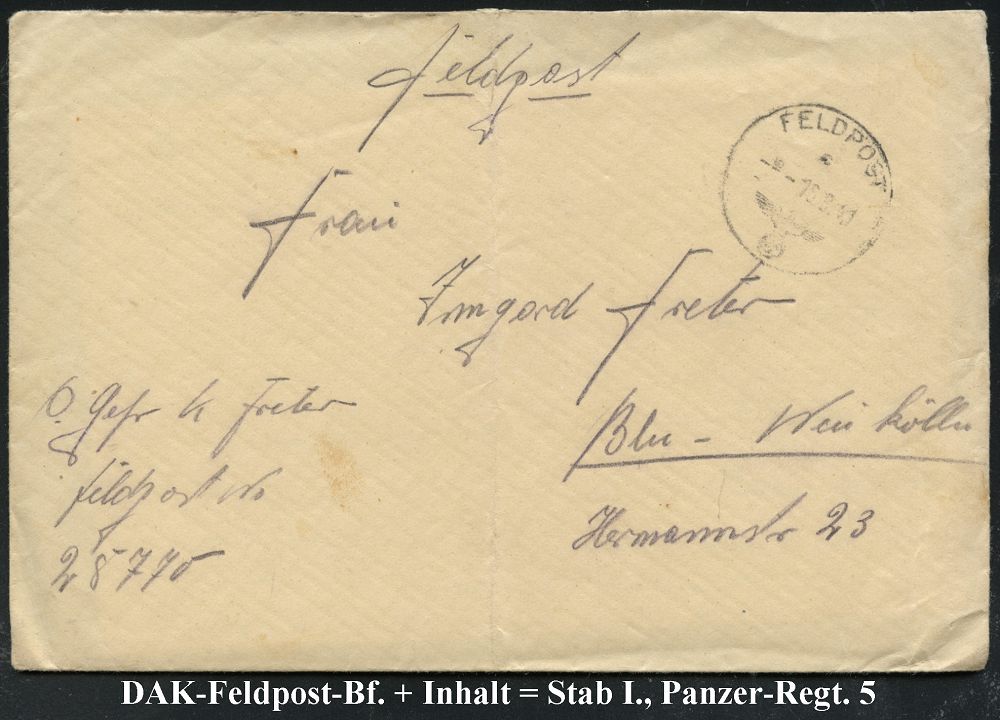 Feldpost
FELDPOST
Frau
Irmgard Freter
Bln - Neukölln
Hermannstr 23
O. Gefr K Freter
Feldpost No
28770
DAK-Feldpost-Bf. + Inhalt = Stab I., Panzer-Regt. 5